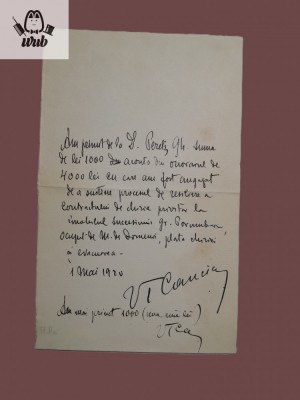 wrb
Am primit de la D. Peretz Gh. suma
de lei 1000 acont din onorarul de
4000 lei cu care am fost angajat
de a susține procesul de reziliere a
contractului de chirie privitor la
imobilul succesiunii Gr.
ocupat de M. de Domenii, plata chiriei
și evacuarea.
1 Mai 1920
Am mai primit 1000 (una mie lei)